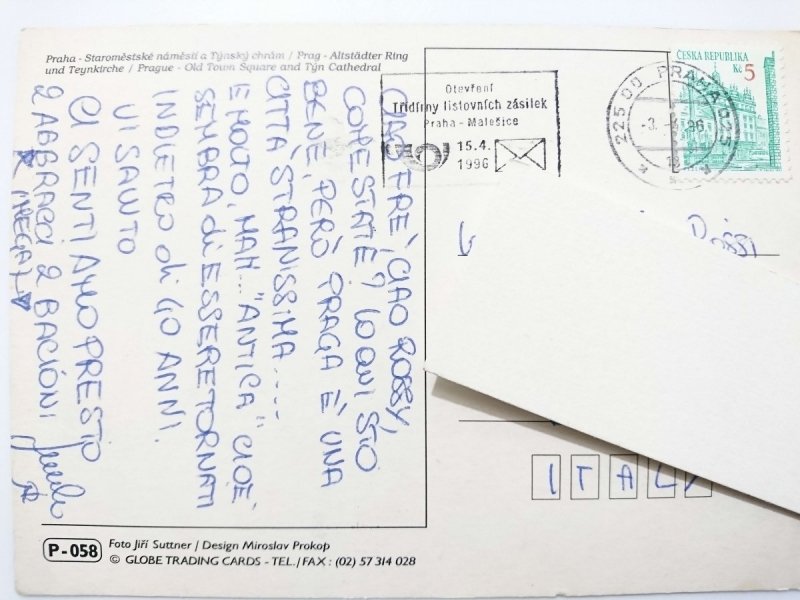 Praha - Staroměstské náměstí a Týnský chrám / Prag - Altstädter Ring
und Teynkirche / Prague - Old Town Square and Týn Cathedral
CIAO FRE', CIAO ROSSY,
COME STATE? IO QUI STO
BENE, PERÒ PRAGA È UNA
CITTÀ STRANISSIMA....
E MOLTO, MAH... "ANTICA", CIOÈ
SEMBRA di ESSERE TORNATI
INDIETRO di 40 ANNI.
VI SALUTO
CI SENTIAMO PRESTO
2 ABBRACCI 2 BACIÓNI
(MEGA)
Otevření
Třídírny listovních zásilek
Praha - Malešice
15.4.
1996
225 00 PRAHA 025
ČESKÁ REPUBLIKA
Kč 5
ITALY
P - 058
Foto Jiří Suttner / Design Miroslav Prokop
© GLOBE TRADING CARDS - TEL./FAX : (02) 57 314 028